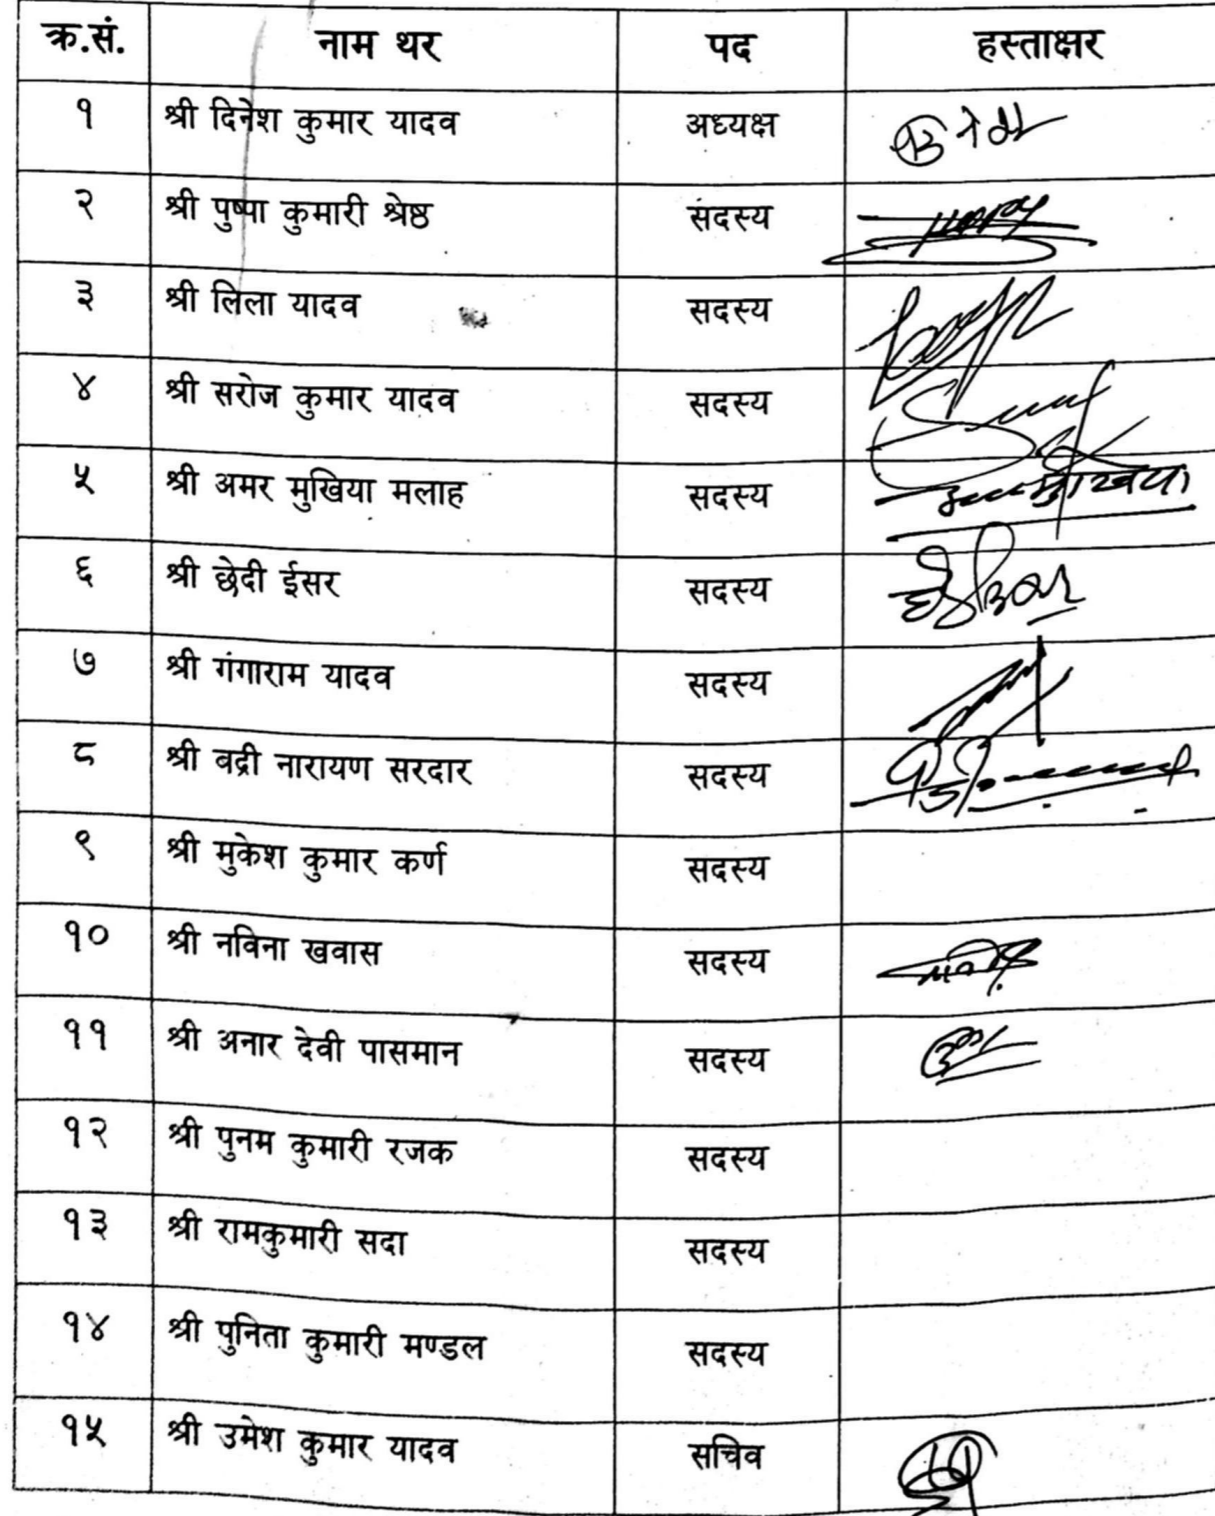 क्र.सं. नाम थर पद हस्ताक्षर
१ श्री दिनेश कुमार यादव अध्यक्ष
२ श्री पुष्पा कुमारी श्रेष्ठ सदस्य
३ श्री लिला यादव सदस्य
४ श्री सरोज कुमार यादव सदस्य
५ श्री अमर मुखिया मलाह सदस्य
६ श्री छेदी ईसर सदस्य
७ श्री गंगाराम यादव सदस्य
८ श्री वद्री नारायण सरदार सदस्य
९ श्री मुकेश कुमार कर्ण सदस्य
१० श्री नविना खवास सदस्य
११ श्री अनार देवी पासमान सदस्य
१२ श्री पुनम कुमारी रजक सदस्य
१३ श्री रामकुमारी सदा सदस्य
१४ श्री पुनिता कुमारी मण्डल सदस्य
१५ श्री उमेश कुमार यादव सचिव